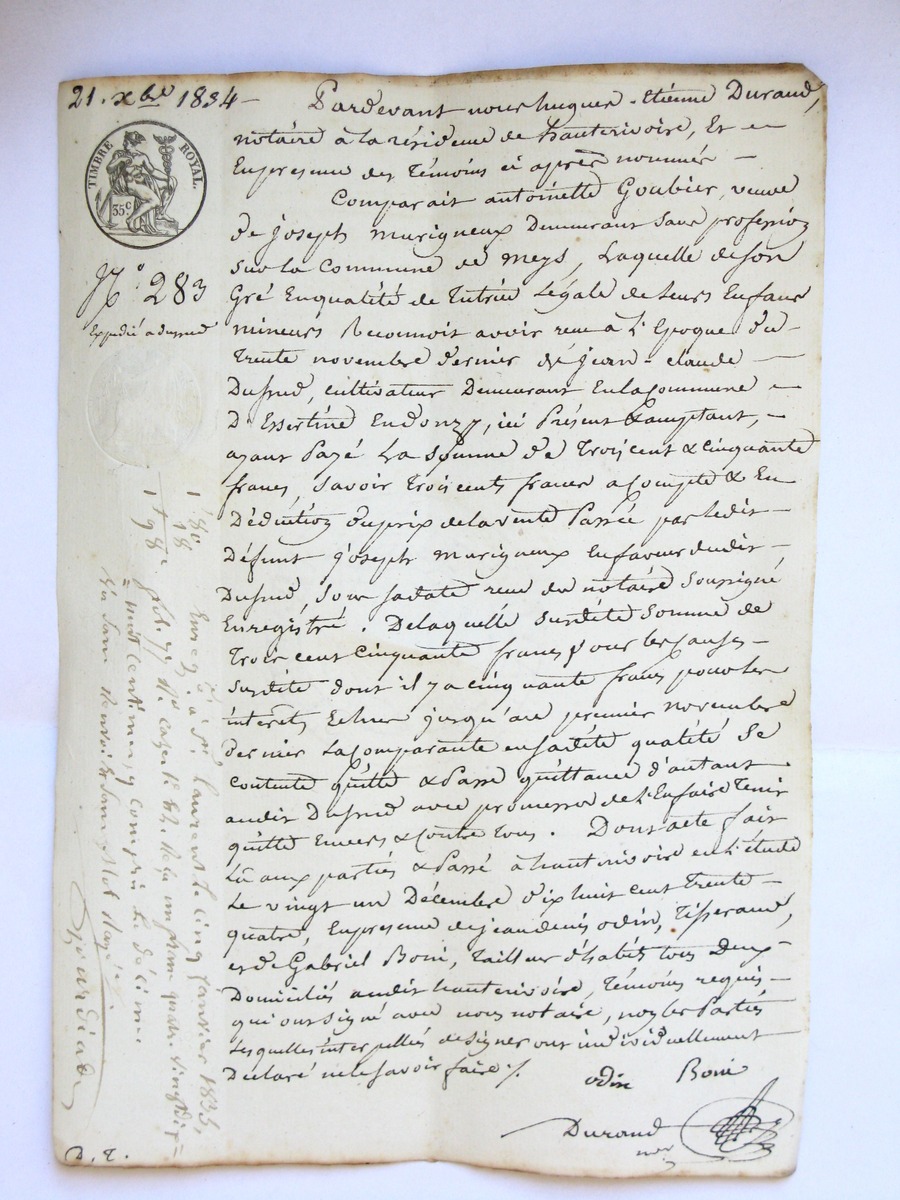 21. xbre 1834 -
Pardevant nous hugues - Etienne Durand,
notaire à la résidence de hauterivoire, Et -
En presence des Témoins ci après nommés -
Comparait antoinette Goubier, veuve
de joseph murigneux Demeurant sans profession
sur la commune de meys, Laquelle de son
Gré En qualité de Tutrice Légale de Leurs Enfans
mineurs Reconnoit avoir reçu à l'Epoque du -
Trente novembre dernier de jean - claude -
Dufund, cultivateur Demeurant En la commune -
D'Essertine En donzy, ici Présent & acceptant, -
ayant Payé La somme de Trois cent & cinquante
francs, savoir Trois cents francs a compte & En
Déduction du prix de la vente Passée par ledit -
Défunt joseph murigneux En faveur dudit -
Dufund, sous sa date reçu du notaire soussigné
Enregistré. De laquelle susdite somme de
Trois cent cinquante francs pour les causes -
susdite dont il y a cinquante francs pour les
interêts Echus jusqu'au premier novembre
dernier La comparante en sadite qualité se
contente quitte & Passe quittance d'autant
audit Dufund avec promesse de l'En faire Tenir
quitte Envers & contre Tous. Dont acte fait
Lû aux parties & Passé à hauterivoire en l'étude
Le vingt un Décembre dix huit cent Trente -
quatre, En presence de jean denis odin, Tisserand,
et de Gabriel Boni, Tailleur d'habits tous Deux -
Domiciliés audit hauterivoire, Témoins requis -
qui ont signé avec nous notaire, non les Parties
Lesquelles interpellées de signer ont individuellement
Déclaré ne le savoir faire ./.
odin Boni
Durand
nore
TIMBRE ROYAL.
35c
No. 283
Expédié a dufund
1 80
18
1 98
Enreg. té à St. Laurent le cinq janvier 1835,
fol. 97 Ro. case 1re
centimes, y compris le décime
D. T.